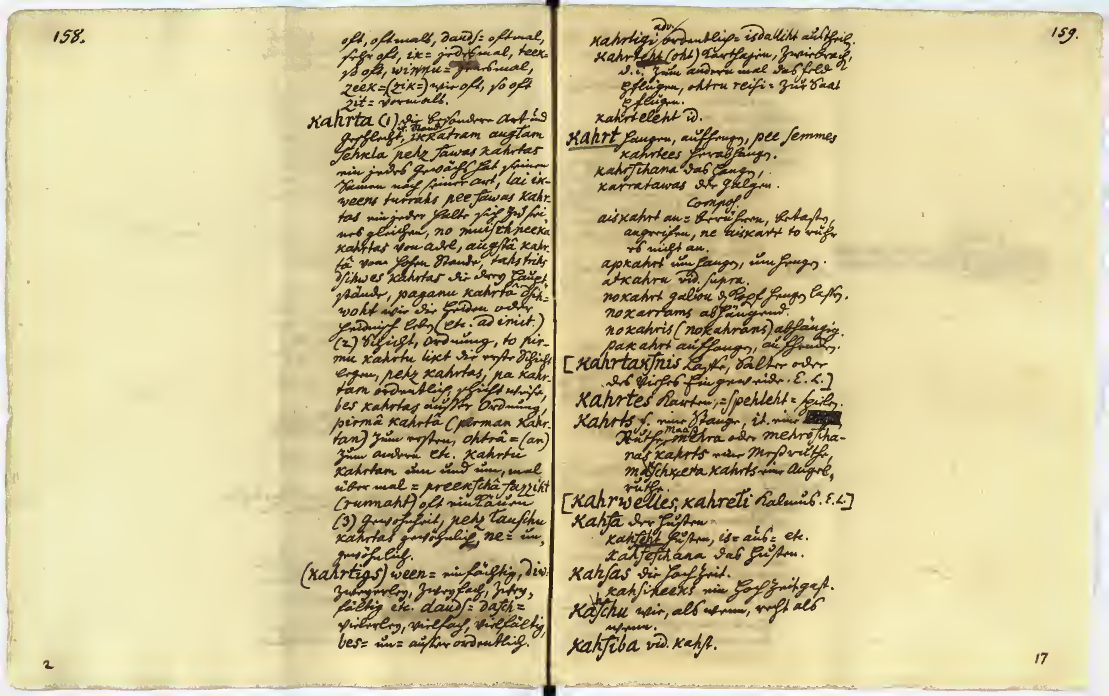 158.
oft, oftmals, daudſ= oftmal,
sehr oft, ik= jedesmal, teek=
so oft, winnu= mal,
zeek=(zik=) wie oft, so oft
zit= vormals.
Kahrta (1) die besondere Art und
Geschlecht, ikkatram augłam
ſehkla pehz ſawas kahrtas
ein jedes Gewächs hat seinen
Samen nach seiner Art, lai ik-
weens turrahs pee ſawas kahr-
tas ein jeder halte sich zu sei-
nes gleichen, no muiſchneeka
kahrtas von Adel, augſtâ kahr-
tâ vom hohen Stande, tahs trihs
dſihwes kahrtas die drey Haupt
stände, paganu kahrtâ dſih-
woht wie die Heiden oder
heidnisch leben (etc. ad init.)
(2) Schicht, Ordnung, to pir-
mu kahrtu likt die erste Schicht
legen, pehz kahrtas, pa kahr-
tam ordentlich, schicht weise,
bes kahrtas außer Ordnung,
pirmâ kahrtâ (pirman kahr-
tan) zum ersten, ohtrâ= (an)
zum andern etc. kahrtu
kahrtam um und um, mal
über mal= preekſchâ ſazzikt
(runnaht) oft
(3) Gewohnheit, pehz lauſchu
kahrtas gewöhnlich, ne= un,
gewöhnlich.
(Kahrtigs) ween= einfächtig, diw=
zweyerley, zweyfach, zwey,
fältig etc. daudſ= daſch=
vielerley, vielfach, vielfältig,
bes= un= außer ordentlich.
2
159.
kahrtigi adv. ordentlich= isdaliht austheil.
Kahrteht (oht) zwiebrach,
d.i. zum andern mal das Feld
pflügen, ohtru reiſi= zur Saat
pflügen.
kahrteleht id.
Kahrt hangen, aufhengen, pee ſemmes
kahrtees herabhängen.
kahrſchana das Hangen,
karratawas der Galgen.
Compos.
aiskahrt an= berühren, betasten,
angreifen, ne aiskarr to rühr
es nicht an.
apkahrt umhangen, umhengen.
atkahru vid. supra.
nokahrt galwu d. Kopf hengen laſſen.
nokarrams abhängend.
nokahris (nokahrans) abhängig.
pakahrt aufhangen, aufhenken.
[Kahrtakſnis Falte oder
des Viehes Eingeweide. E. L.]
Kahrtes Karten,= ſpehleht= spielen.
Kahrts f. eine Stange, it. eine
Ruthe, mehra oder mehroſcha-
nas kahrts eine Meßruthe,
makſchkera kahrts eine Angel,
ruthe.
[Kahrwelles, kahreli Kalmus. E. L.]
Kahſa der Husten
kahſeht husten, is= aus= etc.
kahſeſchana das Husten.
Kahſas die Hochzeit.
kahſineeks ein Hochzeitgast.
Kaſchu wie, als wenn, recht als
wenn.
Kahſiba vid. kahſt.
17